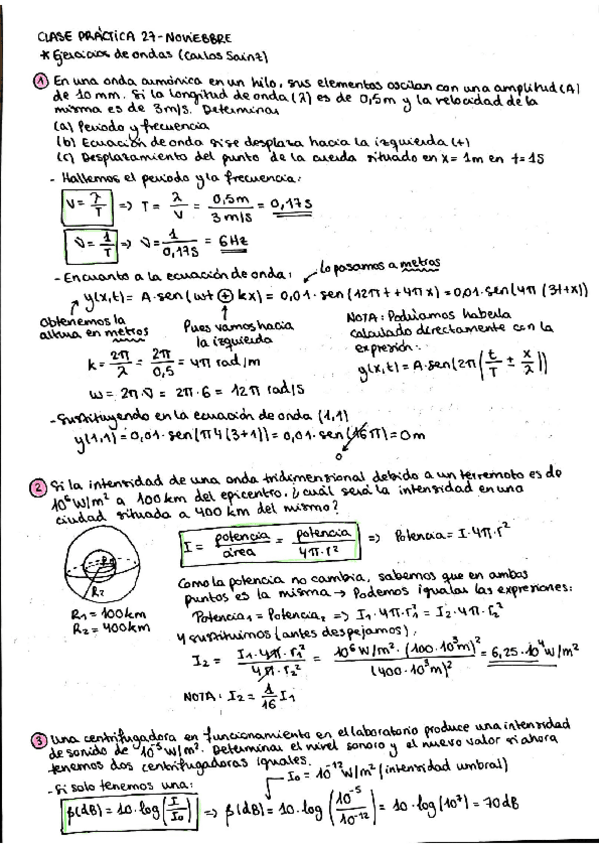 CLASE PRÁCTICA 27-NOVIEBBRE
* Ejercicios de ondas (Carlos Sainz)
1 En una onda armónica en un hilo, sus elementos oscilan con una amplitud (A)
de 10 mm. Si la longitud de onda (λ) es de 0,5m y la velocidad de la
misma es de 3m/s. Determinar
(a) Periodo y frecuencia
(b) Ecuación de onda si se desplaza hacia la izquierda (+)
(c) Desplazamiento del punto de la cuerda situado en x = 1m en t = 1s
- Hallemos el periodo y la frecuencia:
V = λ/T => T = λ/V = 0,5m / 3 m/s = 0,17 s
ν = 1/T => ν = 1/0,17s = 6 Hz
- En cuanto a la ecuación de onda: lo pasamos a metros
y(x,t) = A · sen(ωt ⊕ kx) = 0,01 · sen(12πt + 4πx) = 0,01 · sen(4π (3t+x))
Obtenemos la altura en metros
Pues vamos hacia la izquierda
NOTA: Podríamos haberla calculado directamente con la expresión:
y(x,t) = A · sen(2π(t/T ± x/λ))
k = 2π/λ = 2π/0,5 = 4π rad/m
ω = 2π · ν = 2π · 6 = 12π rad/s
- Sustituyendo en la ecuación de onda (1,1)
y(1,1) = 0,01 · sen(π4(3+1)) = 0,01 · sen(16π) = 0m
0
2 Si la intensidad de una onda tridimensional debido a un terremoto es de
10⁶ W/m² a 100 km del epicentro, ¿cuál será la intensidad en una
ciudad situada a 400 km del mismo?
I = potencia/área = potencia/4π·r² => Potencia = I·4π·r²
R₁
R₂
R₁ = 100km
R₂ = 400km
Como la potencia no cambia, sabemos que en ambas
puntos es la misma → Podemos igualar las expresiones:
Potencia₁ = Potencia₂ => I₁·4π·r₁² = I₂·4π·r₂²
Y sustituimos (antes despejamos),
I₂ = I₁·4π·r₁² / 4π·r₂² = 10⁶ W/m² · (100·10³m)² / (400·10³m)² = 6,25·10⁴ W/m²
NOTA: I₂ = 1/16 I₁
3 Una centrifugadora en funcionamiento en el laboratorio produce una intensidad
de sonido de 10⁻⁵ W/m². Determinar el nivel sonoro y el nuevo valor si ahora
tenemos dos centrifugadoras iguales.
I₀ = 10⁻¹² W/m² (intensidad umbral)
- Si solo tenemos una:
β(dB) = 10·log(I/I₀) => β(dB) = 10·log(10⁻⁵/10⁻¹²) = 10·log(10⁷) = 70 dB